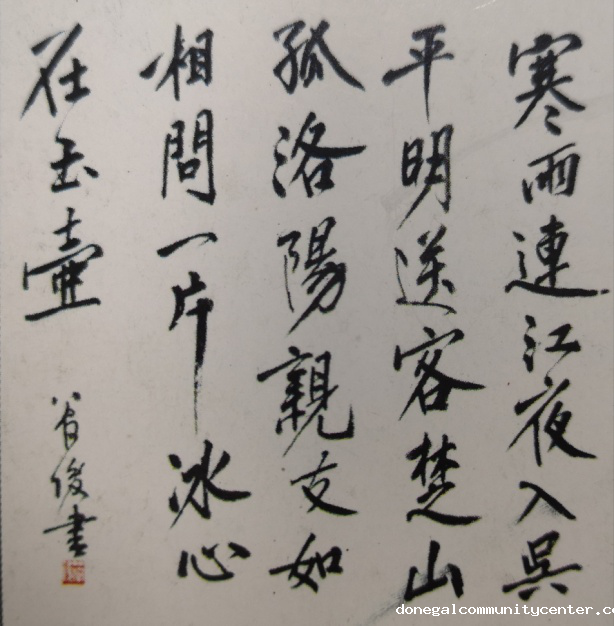 寒雨連江夜入吳
平明送客楚山
孤洛陽親友如
相問一片冰心
在玉壺
俊書
donegalcommunitycenter.c